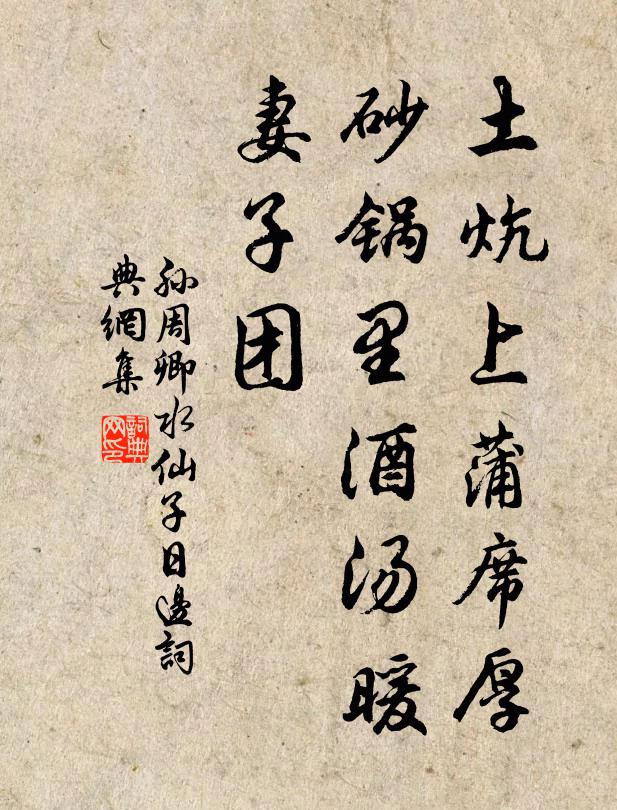 土炕上蒲席厚
砂锅里酒汤暖
妻子团
孙周卿水仙子日边詞
典網集
詞典网印